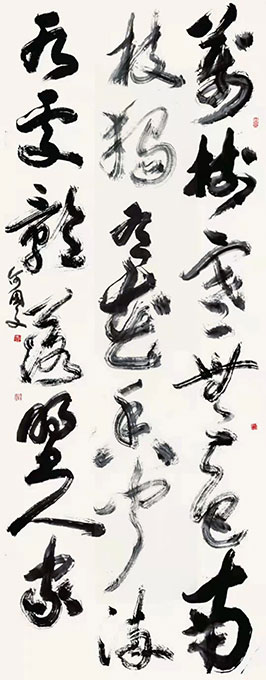 萬樹寒無色南
枝獨有花香聞流
水處影落野人家